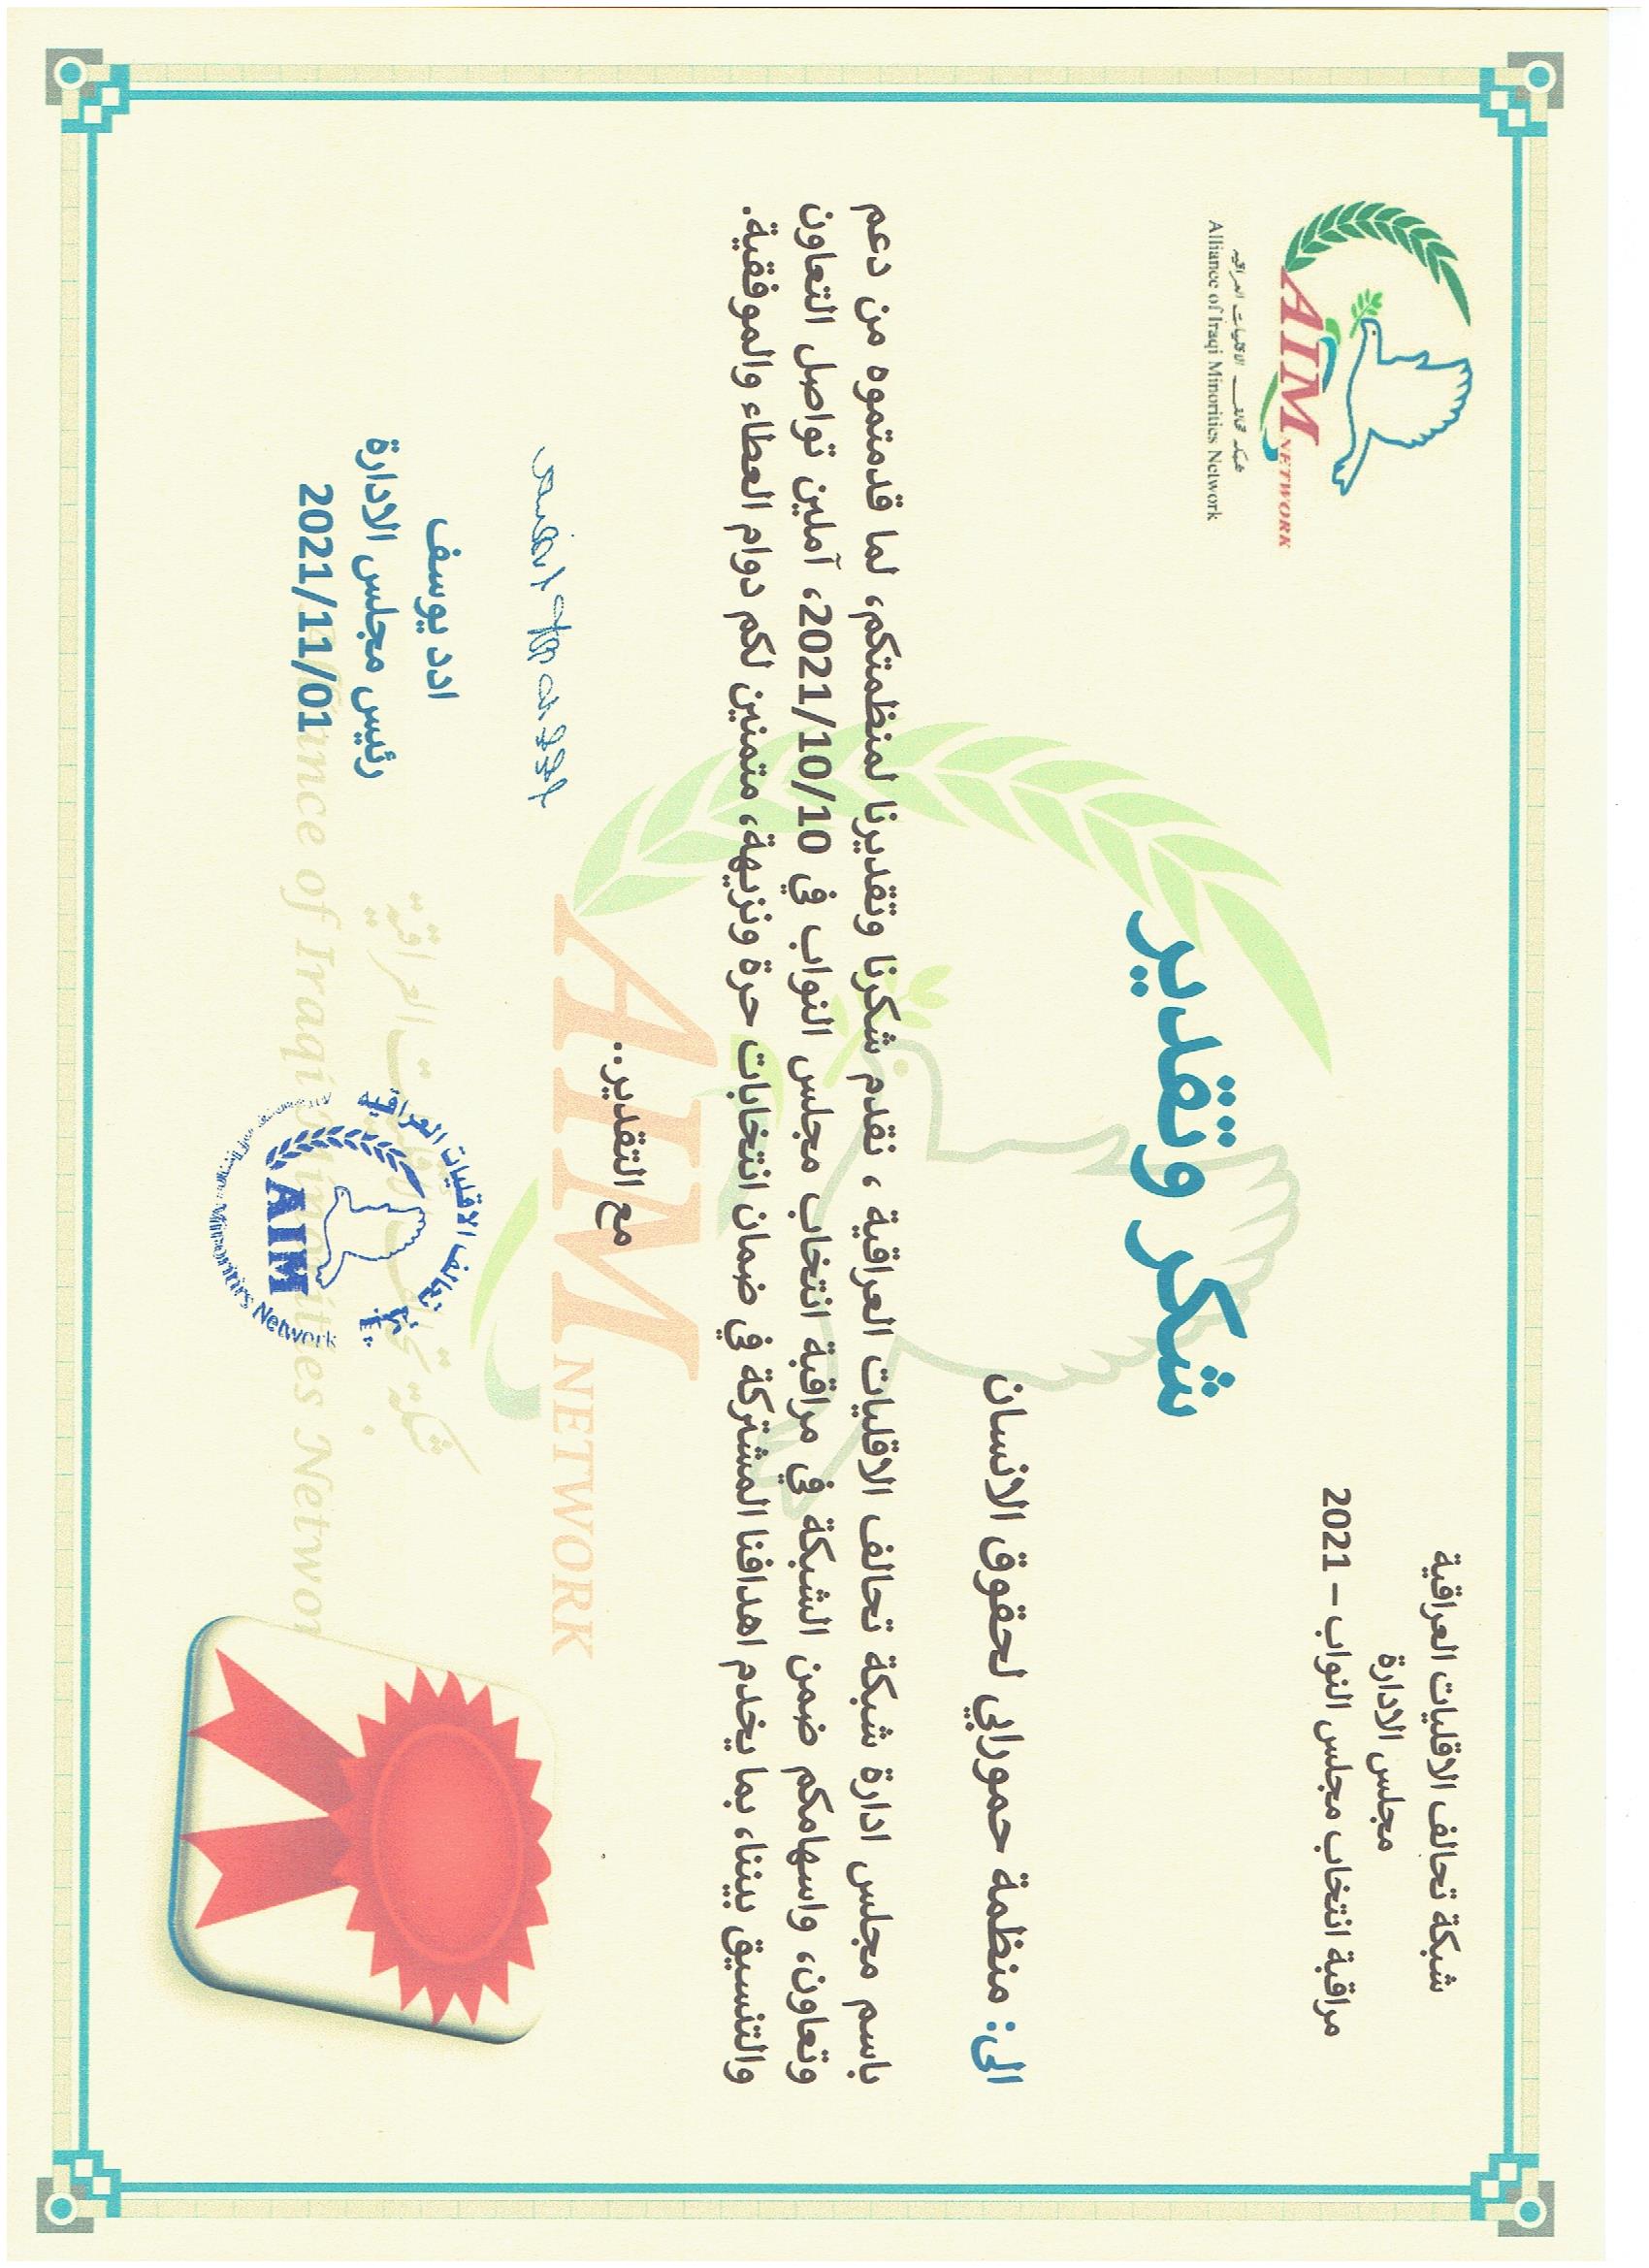 شبكة تحالف الاقليات العراقية
مجلس الادارة
مراقبة انتخاب مجلس النواب – 2021
AIM NETWORK
شبكة تحالف الاقليات العراقية
Alliance of Iraqi Minorities Network
شكر وتقدير
الى: منظمة حمورابي لحقوق الانسان
باسم مجلس ادارة شبكة تحالف الاقليات العراقية ، نقدم شكرنا وتقديرنا لمنظمتكم، لما قدمتموه من دعم
وتعاون، واسهامكم ضمن الشبكة في مراقبة انتخاب مجلس النواب في 2021/10/10، آملين تواصل التعاون
والتنسيق بيننا، بما يخدم اهدافنا المشتركة في ضمان انتخابات حرة ونزيهة، متمنين لكم دوام العطاء والموفقية.
مع التقدير..
ادد يوسف
رئيس مجلس الادارة
2021/11/01
تحالف الاقليات العراقية
AIM
Minorities Network
AIM NETWORK
شبكة تحالف الاقليات العراقية
Alliance of Iraqi Minorities Network